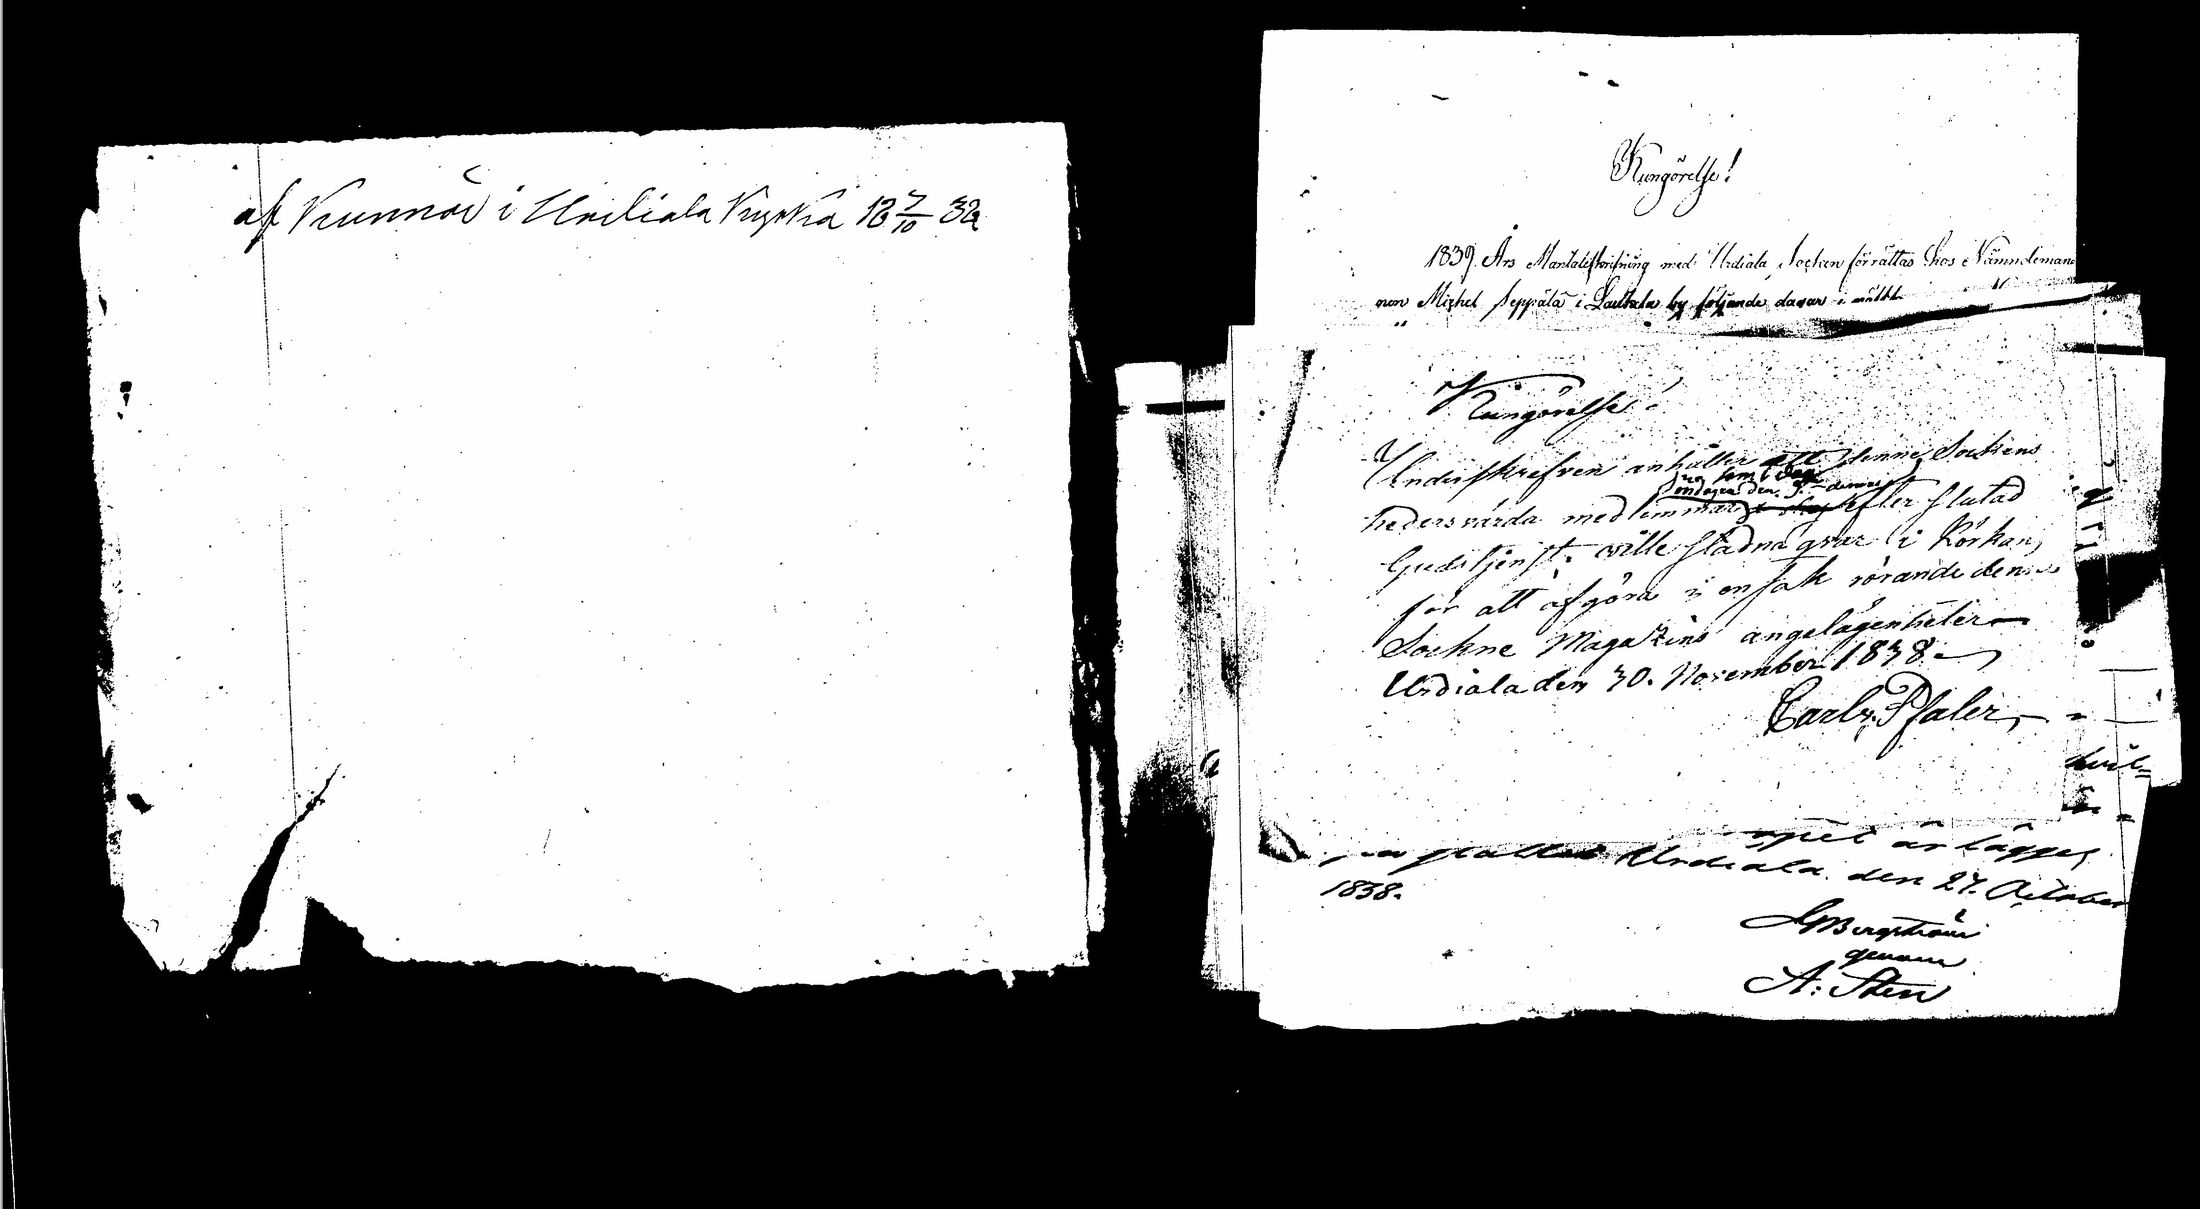 af Kunnar i Urdiala Kyrka 18 7/10 38
Kungörelse!
1839 Års Mantalsskrifning med Urdiala Socken förrättas hos Nämndeman
nen Michel Seppälä i Laukala by följande dagar
Kungörelse!
Underskrefven anhåller att denne Sockens
hedersvärda medlemmar efter slutad
Gudstjenst ville stadna qvar i Körkan,
för att afgöra i en sak rörande denne
Sockne Magazins angelägenheter
Urdiala den 30. November 1838.
Carl v. Pfaler,
hvil=
är lägges
Urdiala den 27. October
1838.
Bergström
genom
A: Sten